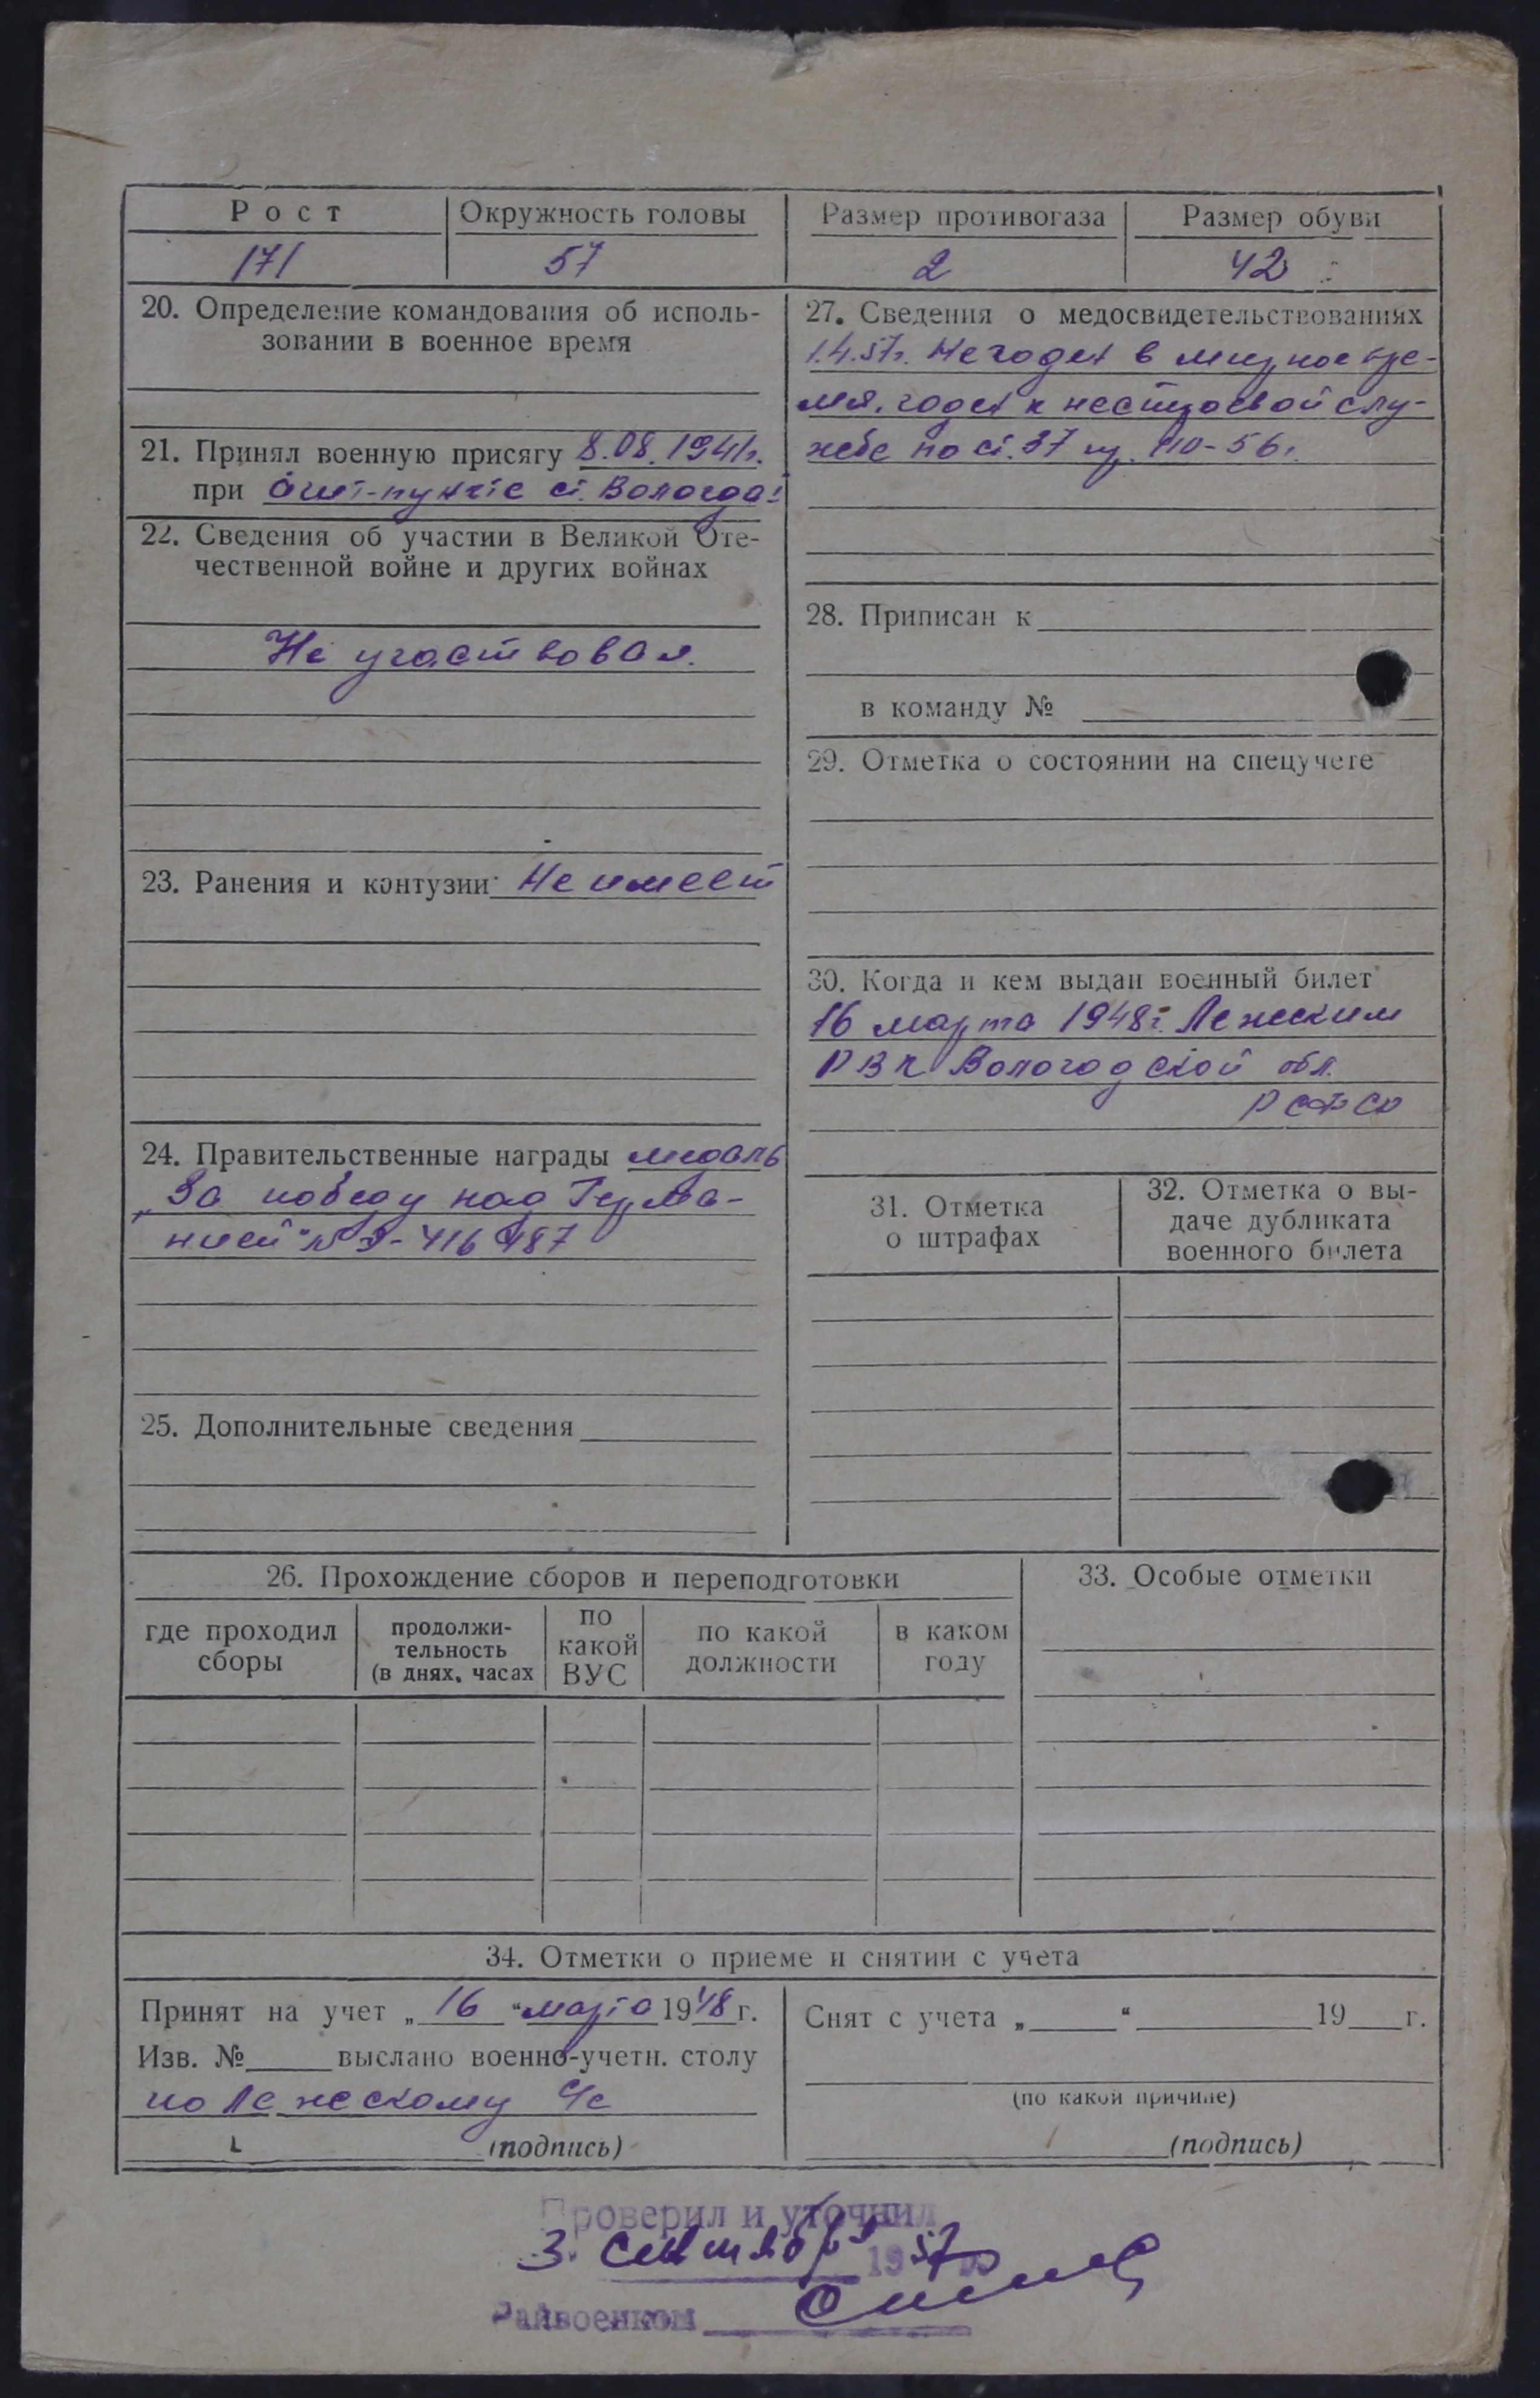 Рост
Окружность головы
Размер противогаза
Размер обуви
171
57
2
42
20. Определение командования об исполь-
зовании в военное время
21. Принял военную присягу 8.08.1941г.
при Агит-пункте ст. Вологда I
22. Сведения об участии в Великой Оте-
чественной войне и других войнах
Не участвовал.
23. Ранения и контузии Не имеет
24. Правительственные награды медаль
„За победу над Герма-
нией" № Э-416487
25. Дополнительные сведения
27. Сведения о медосвидетельствованиях
1.4.57г. Не годен в мирное вре-
мя. годен к нестроевой слу-
жбе по ст. 37 пр. 110-56г.
28. Приписан к
в команду №
29. Отметка о состоянии на спецучете
30. Когда и кем выдан военный билет
16 марта 1948г. Лежским
РВК Вологодской обл.
РСФСР
31. Отметка
о штрафах
32. Отметка о вы-
даче дубликата
военного билета
26. Прохождение сборов и переподготовки
где проходил
сборы
продолжи-
тельность
(в днях, часах
по
какой
ВУС
по какой
должности
в каком
году
33. Особые отметки
34. Отметки о приеме и снятии с учета
Принят на учет „16" марта 1948 г.
Изв. № выслано военно-учетн. столу
по Лежскому с/с
(подпись)
Снят с учета „ " 19 г.
(по какой причине)
(подпись)
Проверил и уточнил
3. сентября 1957
Райвоенком